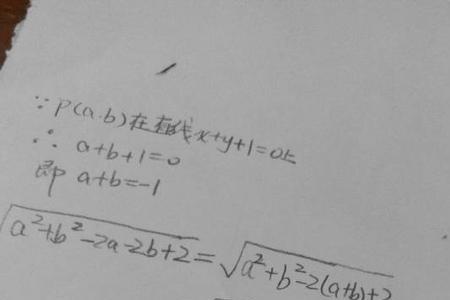 ∵ P(a,b)在直线x+y+1=0上
∴ a+b+1=0
即 a+b=-1
√(a²+b²-2a-2b+2)=√(a²+b²-2(a+b)+2